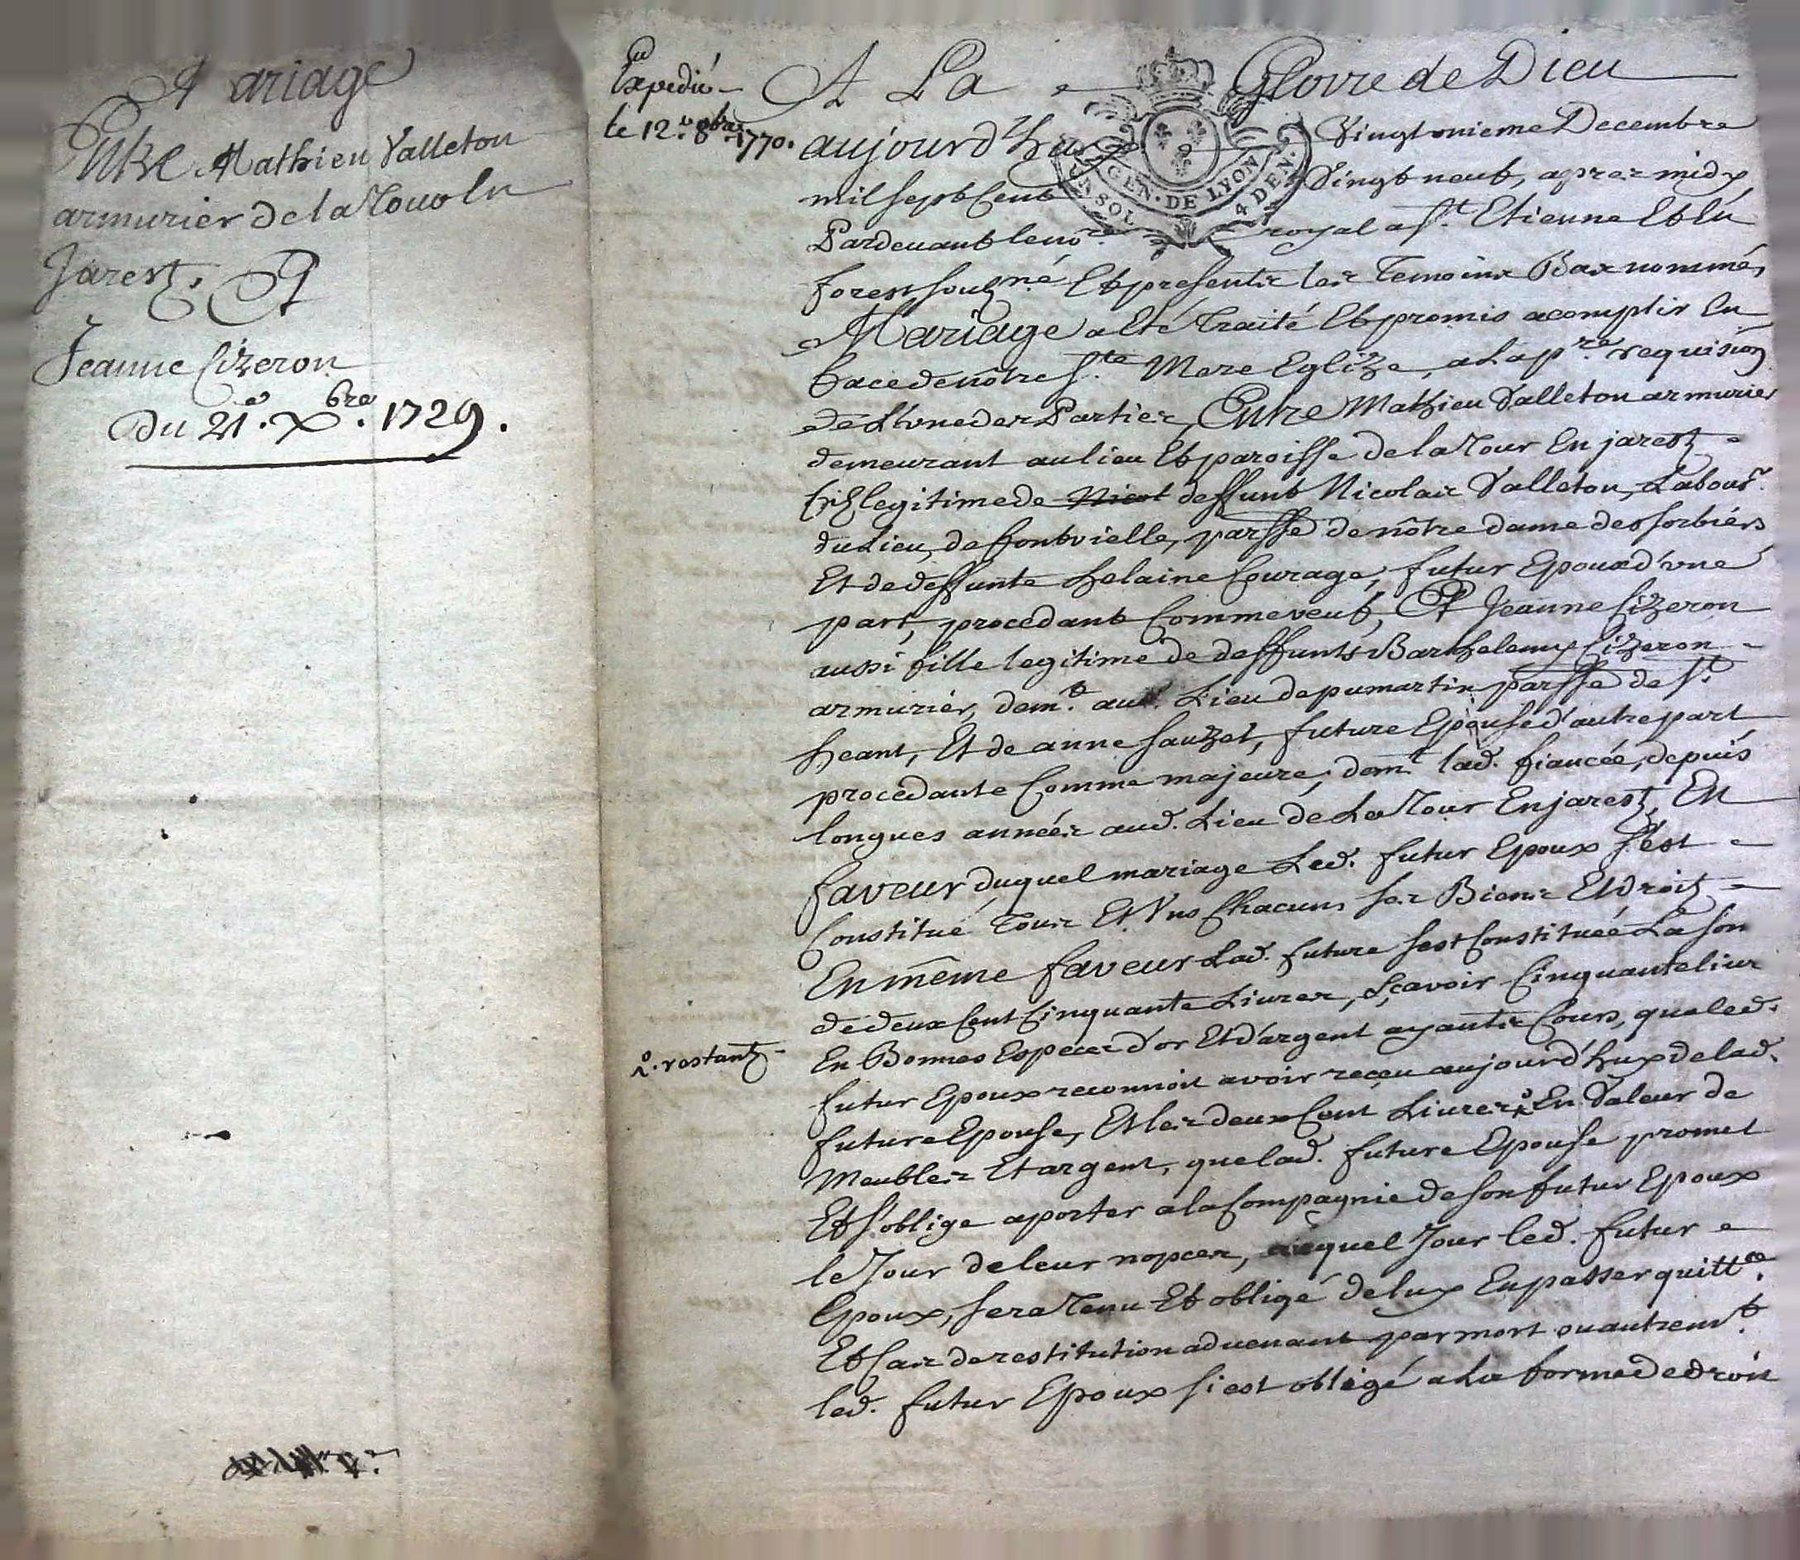 Mariage
Entre Mathieu Valleton
armurier de la Tour En
Jarest, Et
Jeanne Cizeron
Du 21e. Xbre. 1729.
Expedié
le 12e. 8bre 1770.
A La Gloire de Dieu
aujourd'huy Vingt unieme Decembre
mil sept Cent Vingt neuf, aprez midy
Pardevant le nore. royal a St. Etienne En
forest souzné. Et presents les Temoins Bas nommés
Mariage a Eté Traité Et promis acomplir En
face de nôtre Ste Mere Eglize, a la pre. requision
de L'vne des Parties, Entre Mathieu Valleton armurier
demeurant au lieu Et paroisse de la Tour En jarest
filz legitime de Nicol deffunt Nicolas Valleton, Labour.
du Lieu de fontvielle, parsse de nôtre dame de Sorbiers
Et de deffunte helaine Courage, futur Epoux d'vne
part, procedant Comme veuf, Et Jeanne Cizeron
aussi fille legitime de deffunts Barthelemy Cizeron
armurier, demt. au Lieu de pumartin parsse de St.
heant, Et de anne sauzet, future Epouse d'autre part
procedante Comme majeure, demt. lad. fiancée, depuis
longues années aud. Lieu de La Tour En jarest, En
faveur duquel mariage Led. futur Epoux s'est
Constitué Tous Et Vns Chacuns ses Biens Et droitz
En même faveur Lad. future sest Constituée La son
de deux Cent Cinquante Livres, sçavoir Cinquante liur
En Bonnes Especes d'or Et d'argent ayants Cours, que led.
futur Epoux reconnoit avoir reçeu aujourd'huy de lad.
future Epouse, Et les deux Cent Livres En Valeur de
1o. restantz
Meubles Et argent, que lad. future Epouse promet
Et s'oblige aporter a la Compagnie de son futur Epoux
le Jour de leur nopces, auquel Jour led. futur
Epoux, sera Tenu Et obligé de luy En passer quittce.
Et Cas de restitution advenant par mort ou autremt.
led. futur Epoux si est obligé a La forme de droit
GEN. DE LYON
VN SOL 4 DEN.